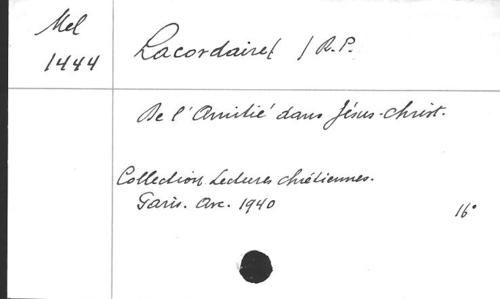 Mel
1444
Lacordaire / R.P.
De l'Amitié dans Jésus-Christ.
Collection Lectures chrétiennes.
Paris. Arc. 1940
16°